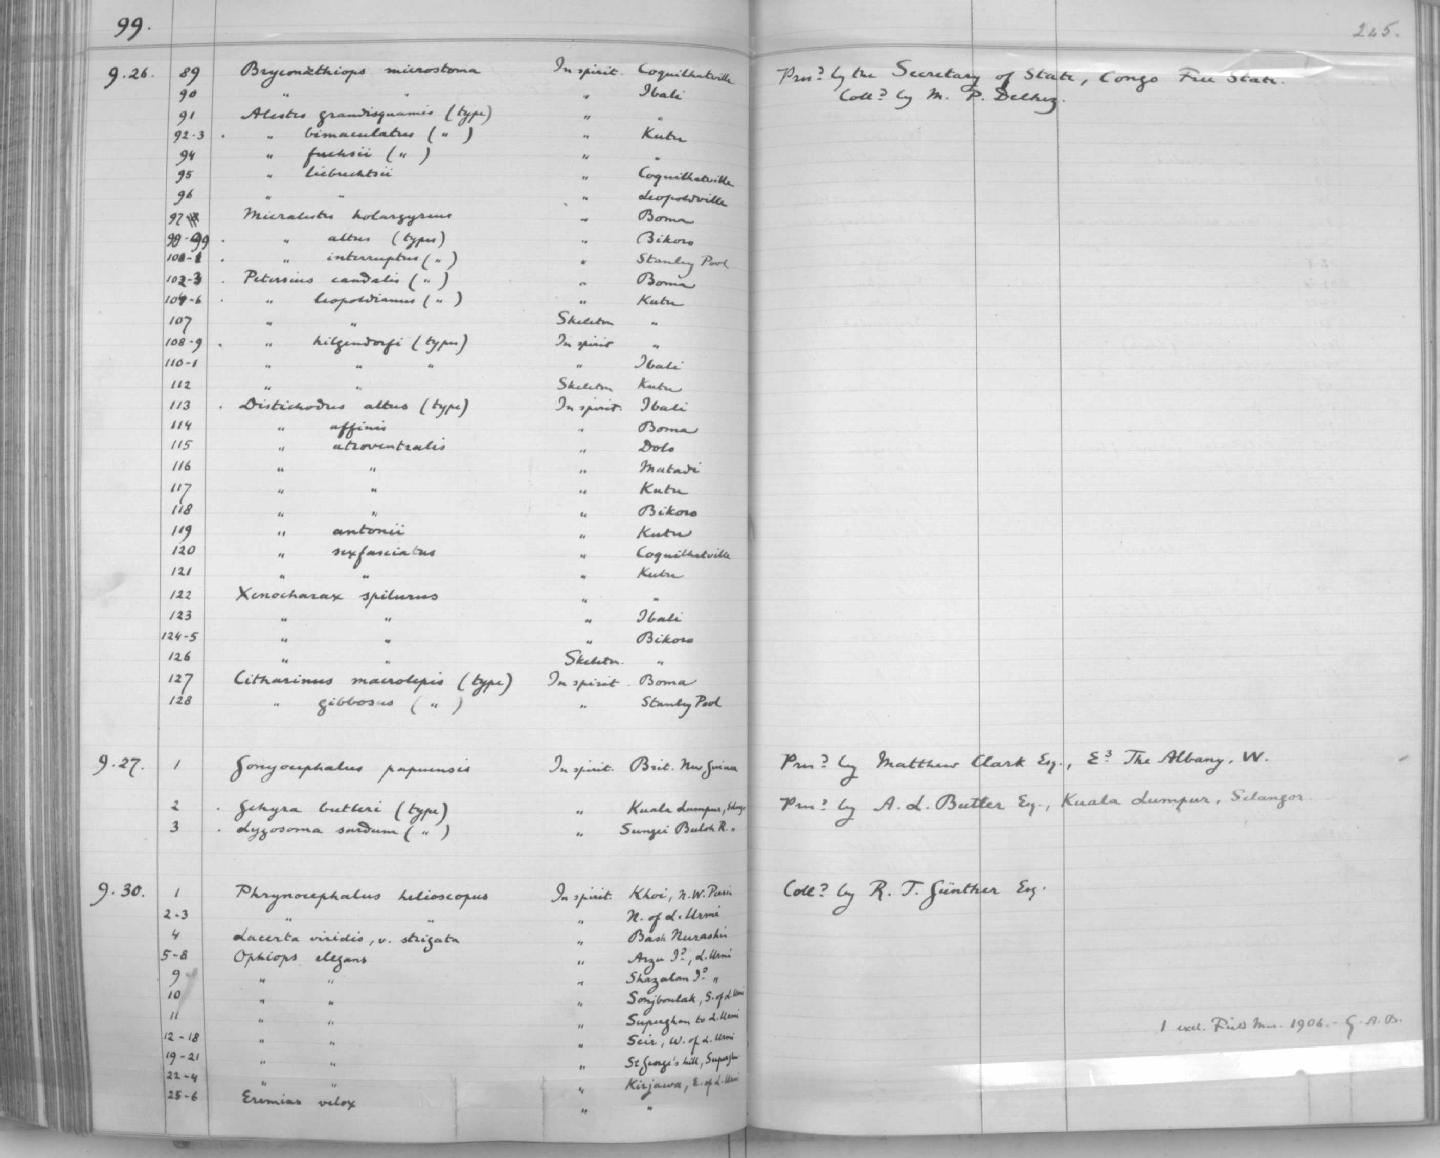 99. 225.
9.26. 89 Bryconæthiops microstoma In spirit. Coquilhatville Pres.d by the Secretary of State, Congo Free State.
90 " " " Ibali Coll.d by M. P. Delhez.
91 Alestes grandisquamis (type) " "
92-3 " bimaculatus ( " ) " Kutu
94 " fuchsii ( " ) " "
95 " liebrechtsii " Coquilhatville
96 " " " Leopoldville
97 Micralestes holargyreus " Boma
98-99 " altus (types) " Bikoro
100-1 " interruptus ( " ) " Stanley Pool
102-3 Petersius caudalis ( " ) " Boma
104-6 " leopoldianus ( " ) " Kutu
107 " " Skeleton "
108-9 " hilgendorfi (types) In spirit "
110-1 " " " " Ibali
112 " " Skeleton Kutu
113 Distichodus altus (type) In spirit. Ibali
114 " affinis " Boma
115 " atroventralis " Dolo
116 " " " Matadi
117 " " " Kutu
118 " " " Bikoro
119 " antonii " Kutu
120 " sexfasciatus " Coquilhatville
121 " " " Kutu
122 Xenocharax spilurus " "
123 " " " Ibali
124-5 " " " Bikoro
126 " " Skeleton. "
127 Citharinus macrolepis (type) In spirit. Boma
128 " gibbosus ( " ) " Stanley Pool
9.27. 1 Gonyocephalus papuensis In spirit. Brit. New Guinea Pres.d by Matthew Clark Esq., E3 The Albany, W.
2 Gehyra butleri (type) " Kuala Lumpur, Pres.d by A. L. Butler Esq., Kuala Lumpur, Selangor.
3 Lygosoma surdum ( " ) " Sungei Buloh R. "
9.30. 1 Phrynocephalus helioscopus In spirit. Khoi, N.W. Persia Coll.d by R. T. Günther Esq.
2-3 " " " N. of L. Urmi
4 Lacerta viridis, v. strigata " Bash Nurashin
5-8 Ophiops elegans " Arzu Id., L. Urmi
9 " " " Shazalan Id. "
10 " " " Sonjboulak, S. of L. Urmi
11 " " " Superghan to L. Urmi 1 excl. Field Mus. 1906. - G. A. B.
12-18 " " " Seir, W. of L. Urmi
19-21 " " " St George's hill,
22-4 " " " Kirjawa, E. of L. Urmi
25-6 Eremias velox " "